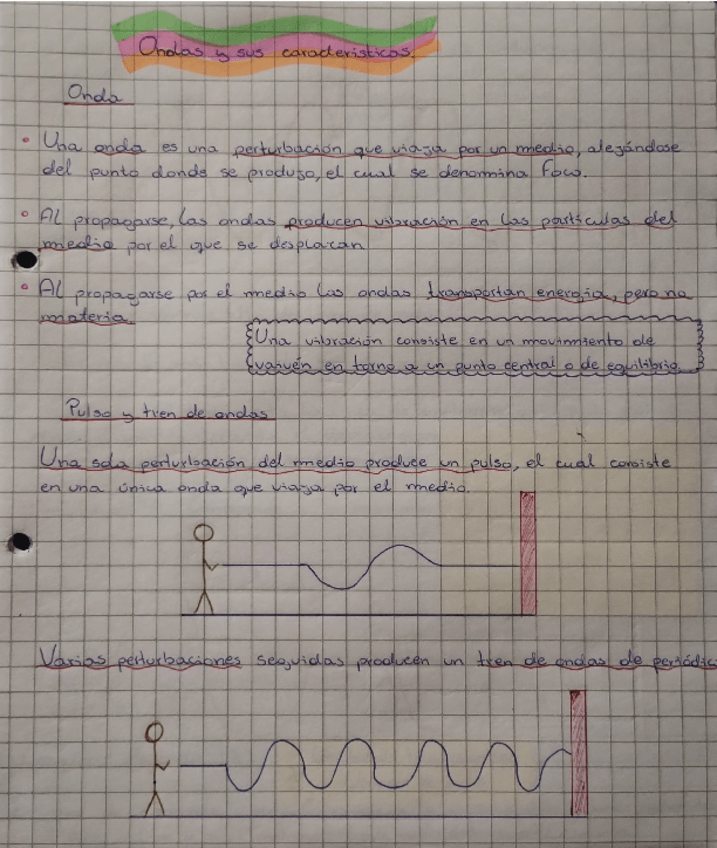 Ondas y sus características.
Onda
Una onda es una perturbación que viaja por un medio, alejándose
del punto donde se produjo, el cual se denomina foco.
Al propagarse, las ondas producen vibración en las partículas del
medio por el que se desplazan
Al propagarse por el medio las ondas transportan energía, pero no
materia.
Una vibración consiste en un movimiento de
vaivén en torno a un punto central o de equilibrio.
Pulso y tren de ondas
Una sola perturbación del medio produce un pulso, el cual consiste
en una única onda que viaja por el medio.
Varias perturbaciones seguidas producen un tren de ondas de periódic